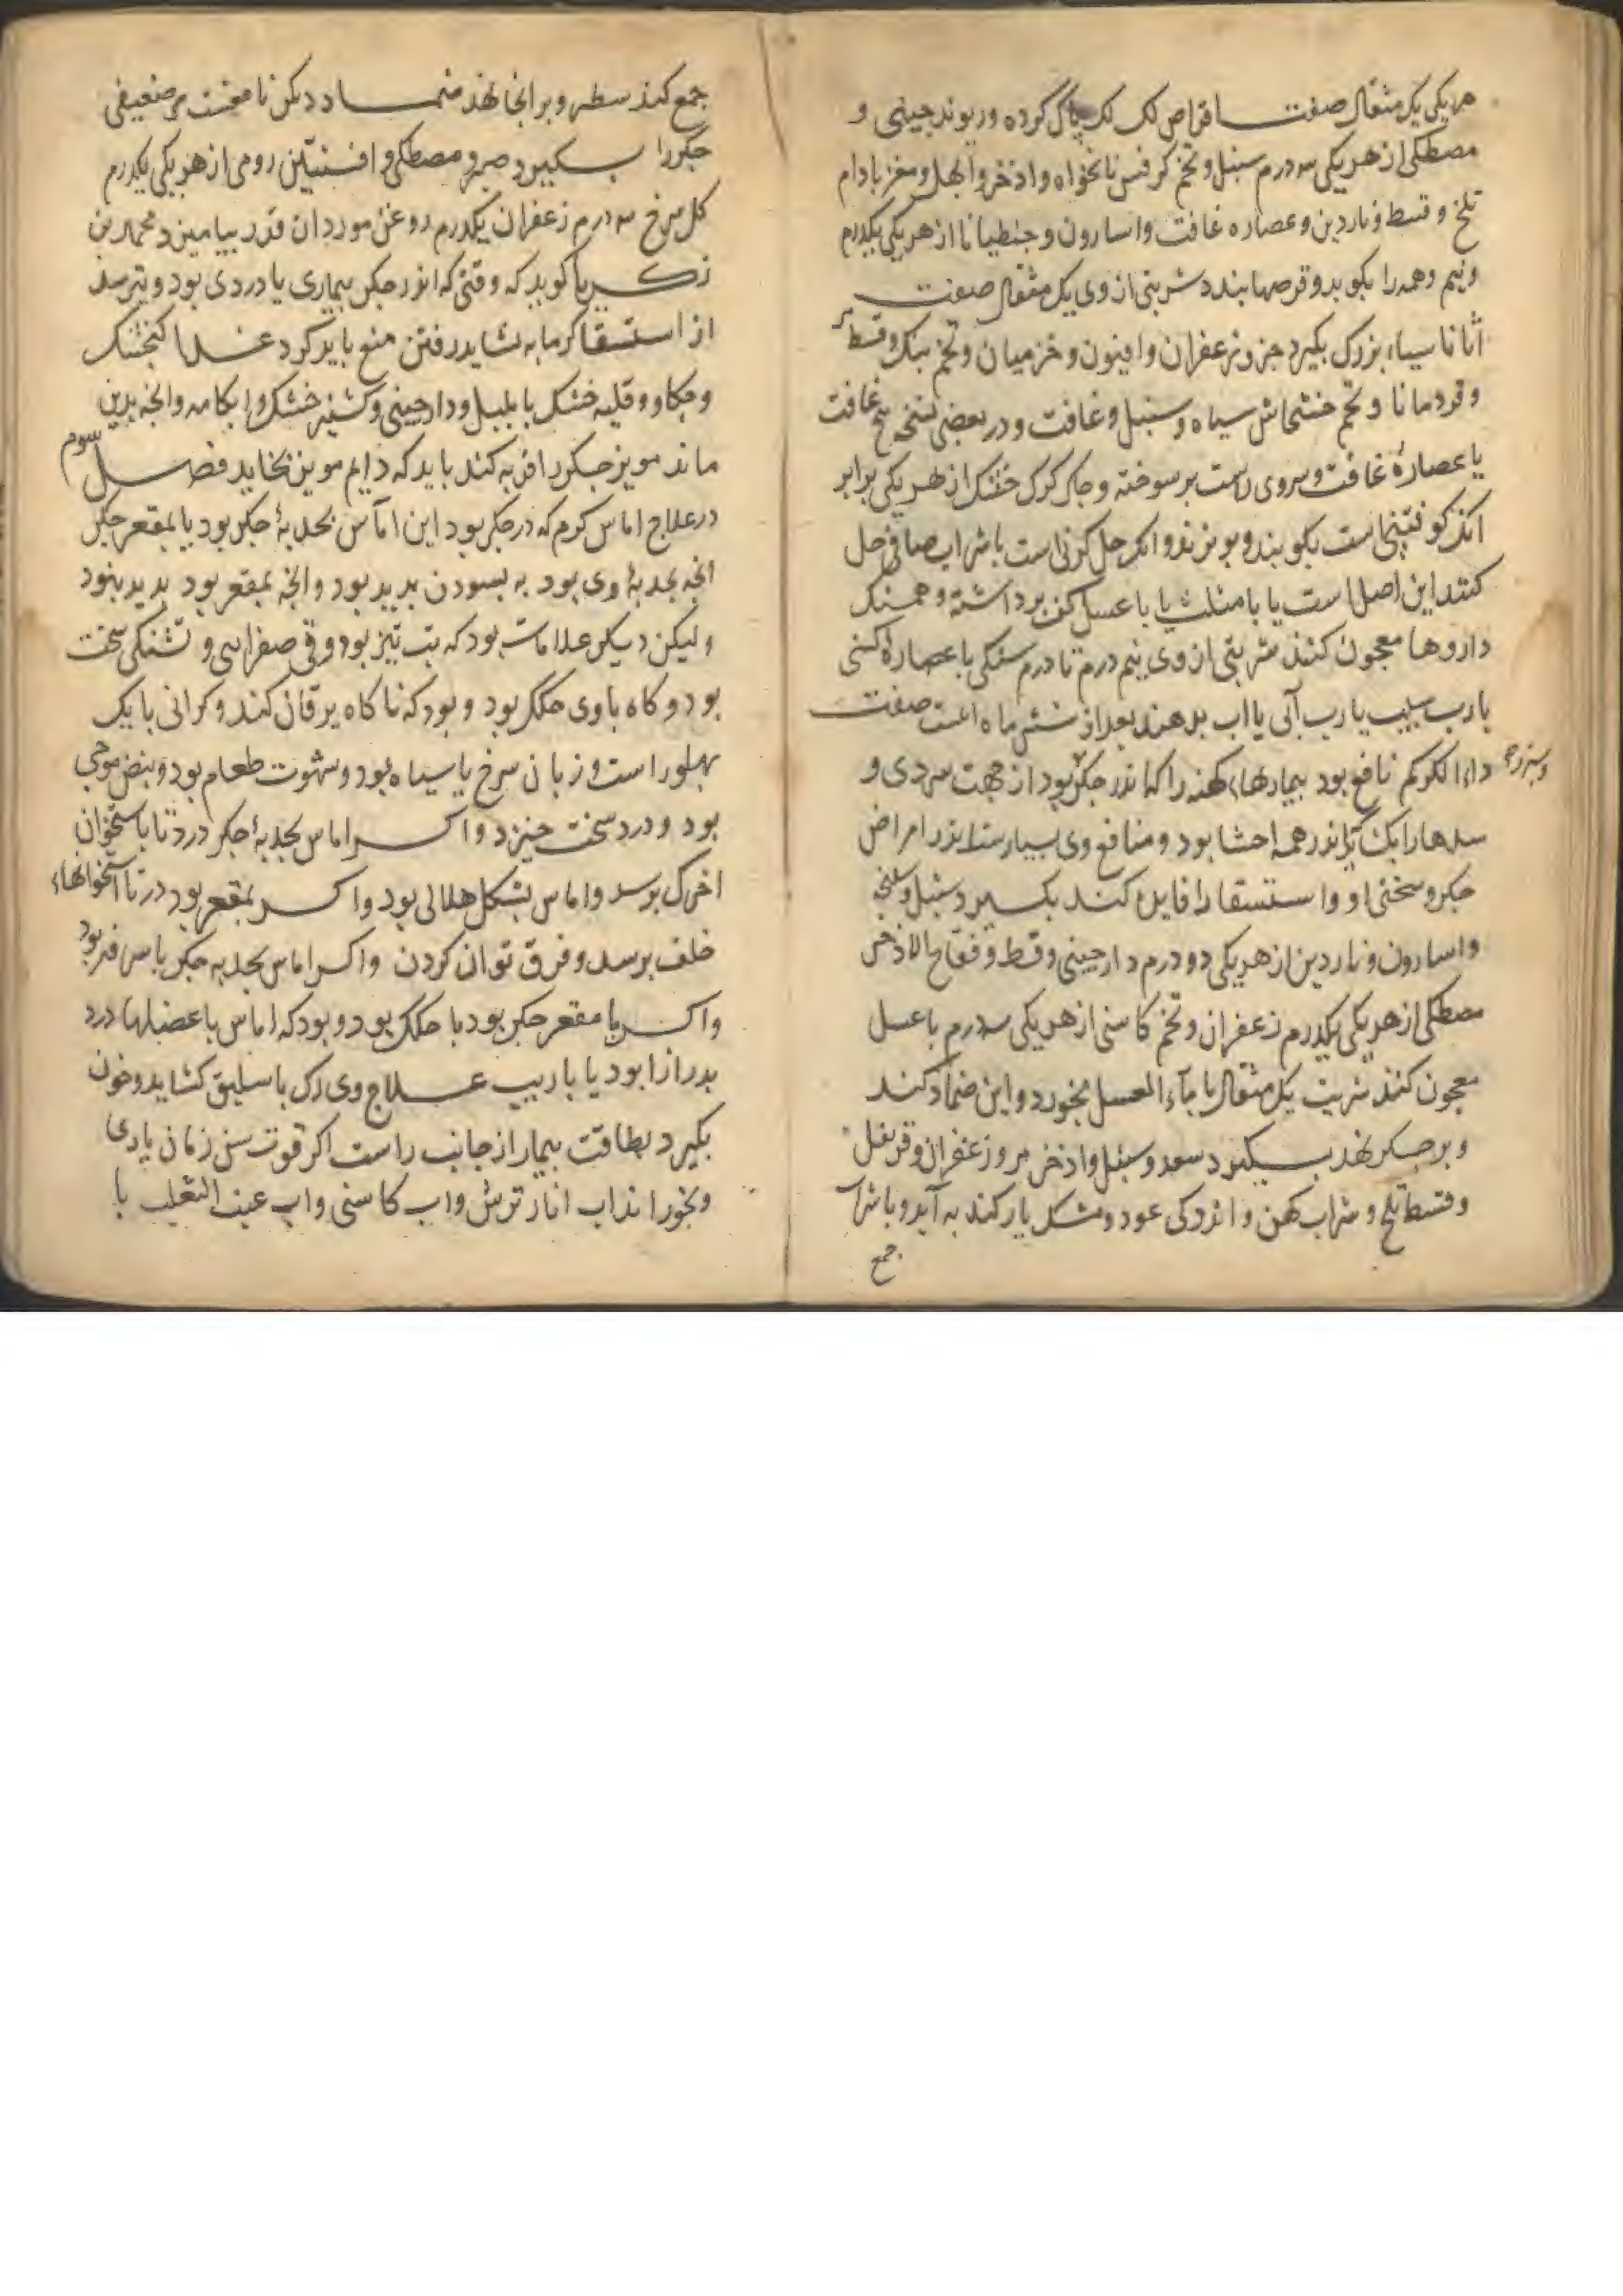 هر یکی یک مثقال صفت اقراص لک لک پاک کرده و ریوند چینی و
مصطکی از هر یکی سه درم سنبل و تخم کرفس نانخواه و اذخر و ابهل و مغز بادام
تلخ و قسط و ناردین و عصاره غافت و اسارون و جنطیانا از هر یکی یکدرم
و نیم و همه را بکوبد و قرصها بندد شربتی از وی یک مثقال صفت
اثاناسیاء بزرک بکیرد جز و زعفران و افیون و خزمیان و تخم بنک و قسط
و قردمانا و تخم خشخاش سیاه و سنبل و غافت و در بعضی نسخه بیخ غافت
یا عصارهٔ غافت و سروی راست بز سوخته و جکر کرک خشک از هر یکی برابر
انک کوفتنی است بکوبند و ببزند و انک حل کردنی است با شراب صافی حل
کنند این اصل است یا با مثلث یا با عسل کف برداشته و همسنک
داروها معجون کنند شربتی از وی نیم درم تا درم سنکی با عصارهٔ کسنی
یا رب سیب یا رب آبی یا اب بدهند بعد از شش ماه صفت
دواء الکرکم نافع بود بیمارهاء کهنه را که اندر جکر بود از جهت سردی و
و سپرز
سدها را که اندر همه احشا بود و منافع وی بسیارست اندر امراض
جکر و سختی او و استسقا را فایده کند بکیرد سنبل و سلیخه
و اسارون و ناردین از هر یکی دو درم دارچینی و قسط و فقاح الاذخر
مصطکی از هر یکی یکدرم زعفران و تخم کاسنی از هر یکی سه درم با عسل
معجون کنند شربت یک مثقال با بماء العسل بخورد و این ضماد کند
و بر جکر نهد بکیرد سعد و سنبل و اذخر مر و زعفران و قرنفل
و قسط تلخ و شراب کهن و اندکی عود و مشک یار کند به آید و با شراب
جمع
جمع کند سطبر و بر انجا نهد ضماد دیکر نا معنت مر ضعیفی
جکر را بکیرد صبر و مصطکی و افسنتین رومی از هر یکی یکدرم
کل سرخ سه درم زعفران یکدرم روغن مورد ان قدر بیامیزد محمد بن
زکریا کوید که وقتی که اندر جکر بیماری یا دردی بود و بترسد
از استسقا کرمابه نشاید رفتن منع باید کرد غذا کنجشک
و چکاو و قلیه خشک با پلپل و دارچینی و کشنیز خشک و ابکامه و انچه بدین
ماند مویز جکر را فربه کند باید که دایم مویز بخاید فصل سوم
در علاج اماس کرم که در جکر بود این اماس بحدبهٔ جکر بود یا بمقعر جکر
انچه بحدبهٔ وی بود به بسودن پدید بود و انچه بمقعر بود پدید نبود
و لیکن دیکر علامات بود که تب تیز بود و قی صفرایی و تشنکی سخت
بود و کاه با وی حکک بود و بود که ناکاه یرقان کند و کرانی با یک
پهلو راست و زبان سرخ یا سیاه بود و شهوت طعام بود و نبض موجی
بود و درد سخت خیزد و اکر اماس بحدبهٔ جکر درد تا باستخوان
اخرک برسد و اماس بشکل هلالی بود و اکر بمقعر بود درد تا استخوانهاء
خلف برسد و فرق توان کردن و اکر اماس بحدبه جکر با سرفه بود
و اکر با مقعر جکر بود با حکک بود و بود که اماس با عضلها درد
بدرازا بود یا باریب علاج وی رک باسلیق کشاید و خون
بکیرد بطاقت بیمار از جانب راست اکر قوت سن زمان یاری
و بخوراند اب انار ترش و اب کاسنی و اب عنب الثعلب با